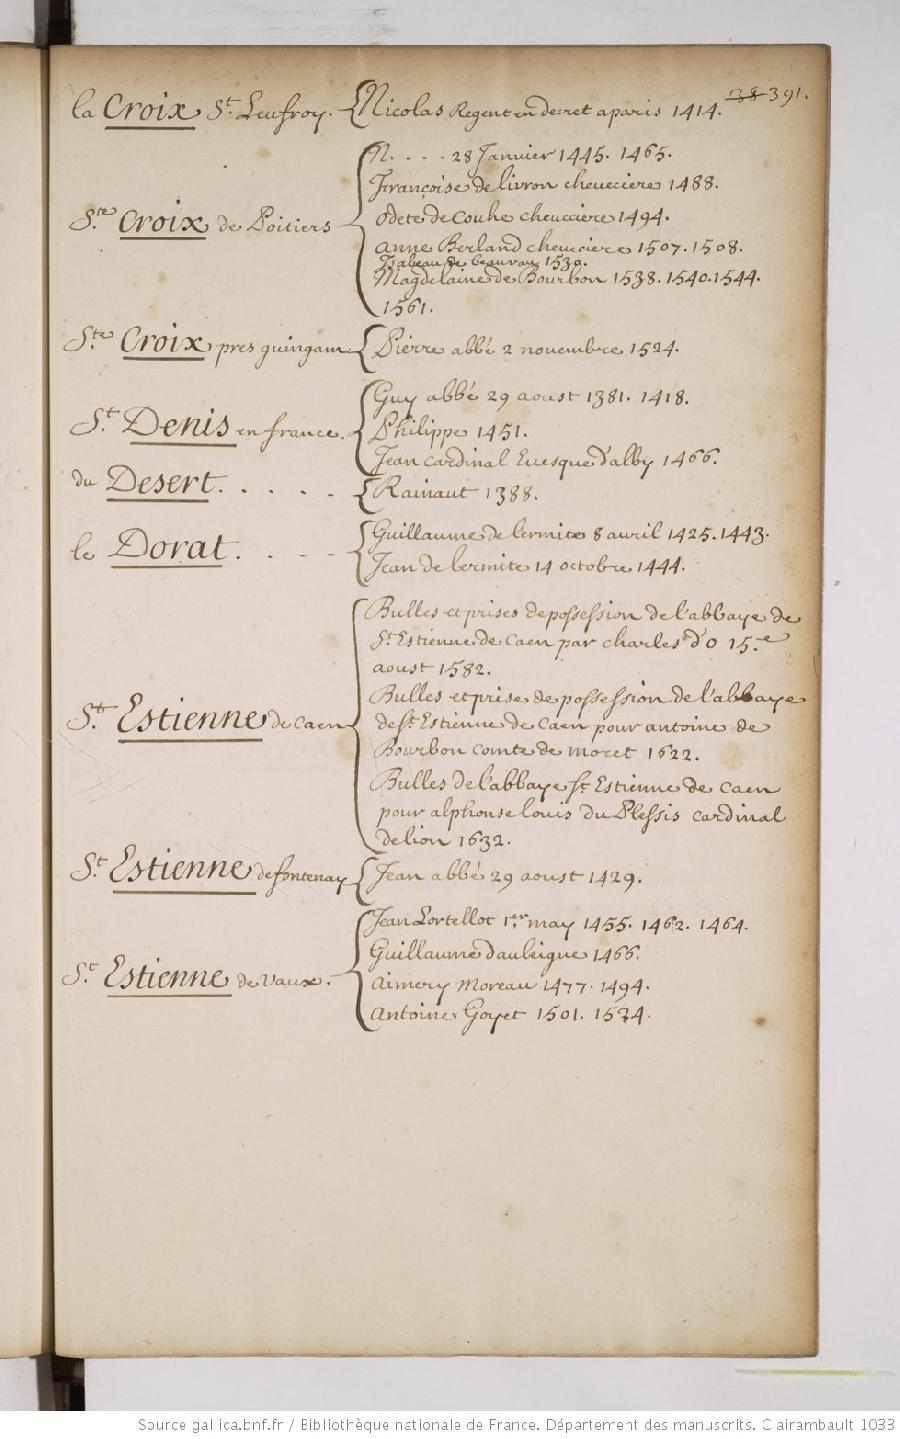 38 391.
la Croix St. Leufroy. Nicolas Regent en decret a paris 1414.
N. . . . 28 Janvier 1445. 1465.
Françoise de livron cheveciere 1488.
Ste Croix de Poitiers odete de couhe cheveciere 1494.
anne Berland cheveciere 1507. 1508.
Isabeau de beauvau 1530.
Magdelaine de Bourbon 1538. 1540. 1544.
1561.
Ste Croix pres guingam Pierre abbé 2 novembre 1524.
Guy abbé 29 aoust 1381. 1418.
St Denis en france. Philippe 1451.
Jean cardinal Evesque d'alby 1466.
du Desert. . . . . Rainaut 1388.
Guillaume de lermite 8 avril 1425. 1443.
le Dorat. . . . Jean de lermite 14 octobre 1444.
Bulles et prises de possession de l'abbaye de
St Estienne de Caen par charles d'O 15.e
aoust 1582.
Bulles et prise de possession de l'abbaye
St. Estienne de Caen de St Estienne de Caen pour antoine de
Bourbon comte de moret 1622.
Bulles de l'abbaye St Estienne de Caen
pour alphonse louis du Plessis cardinal
de lion 1632.
St. Estienne de fontenay Jean abbé 29 aoust 1429.
Jean Lortellot 1.er may 1455. 1462. 1464.
Guillaume d'aubigne 1466.
St. Estienne de Vaux. aimery Moreau 1477. 1494.
antoine Goyet 1501. 1524.
Source gallica.bnf.fr / Bibliothèque nationale de France. Département des manuscrits. Clairambault 1033